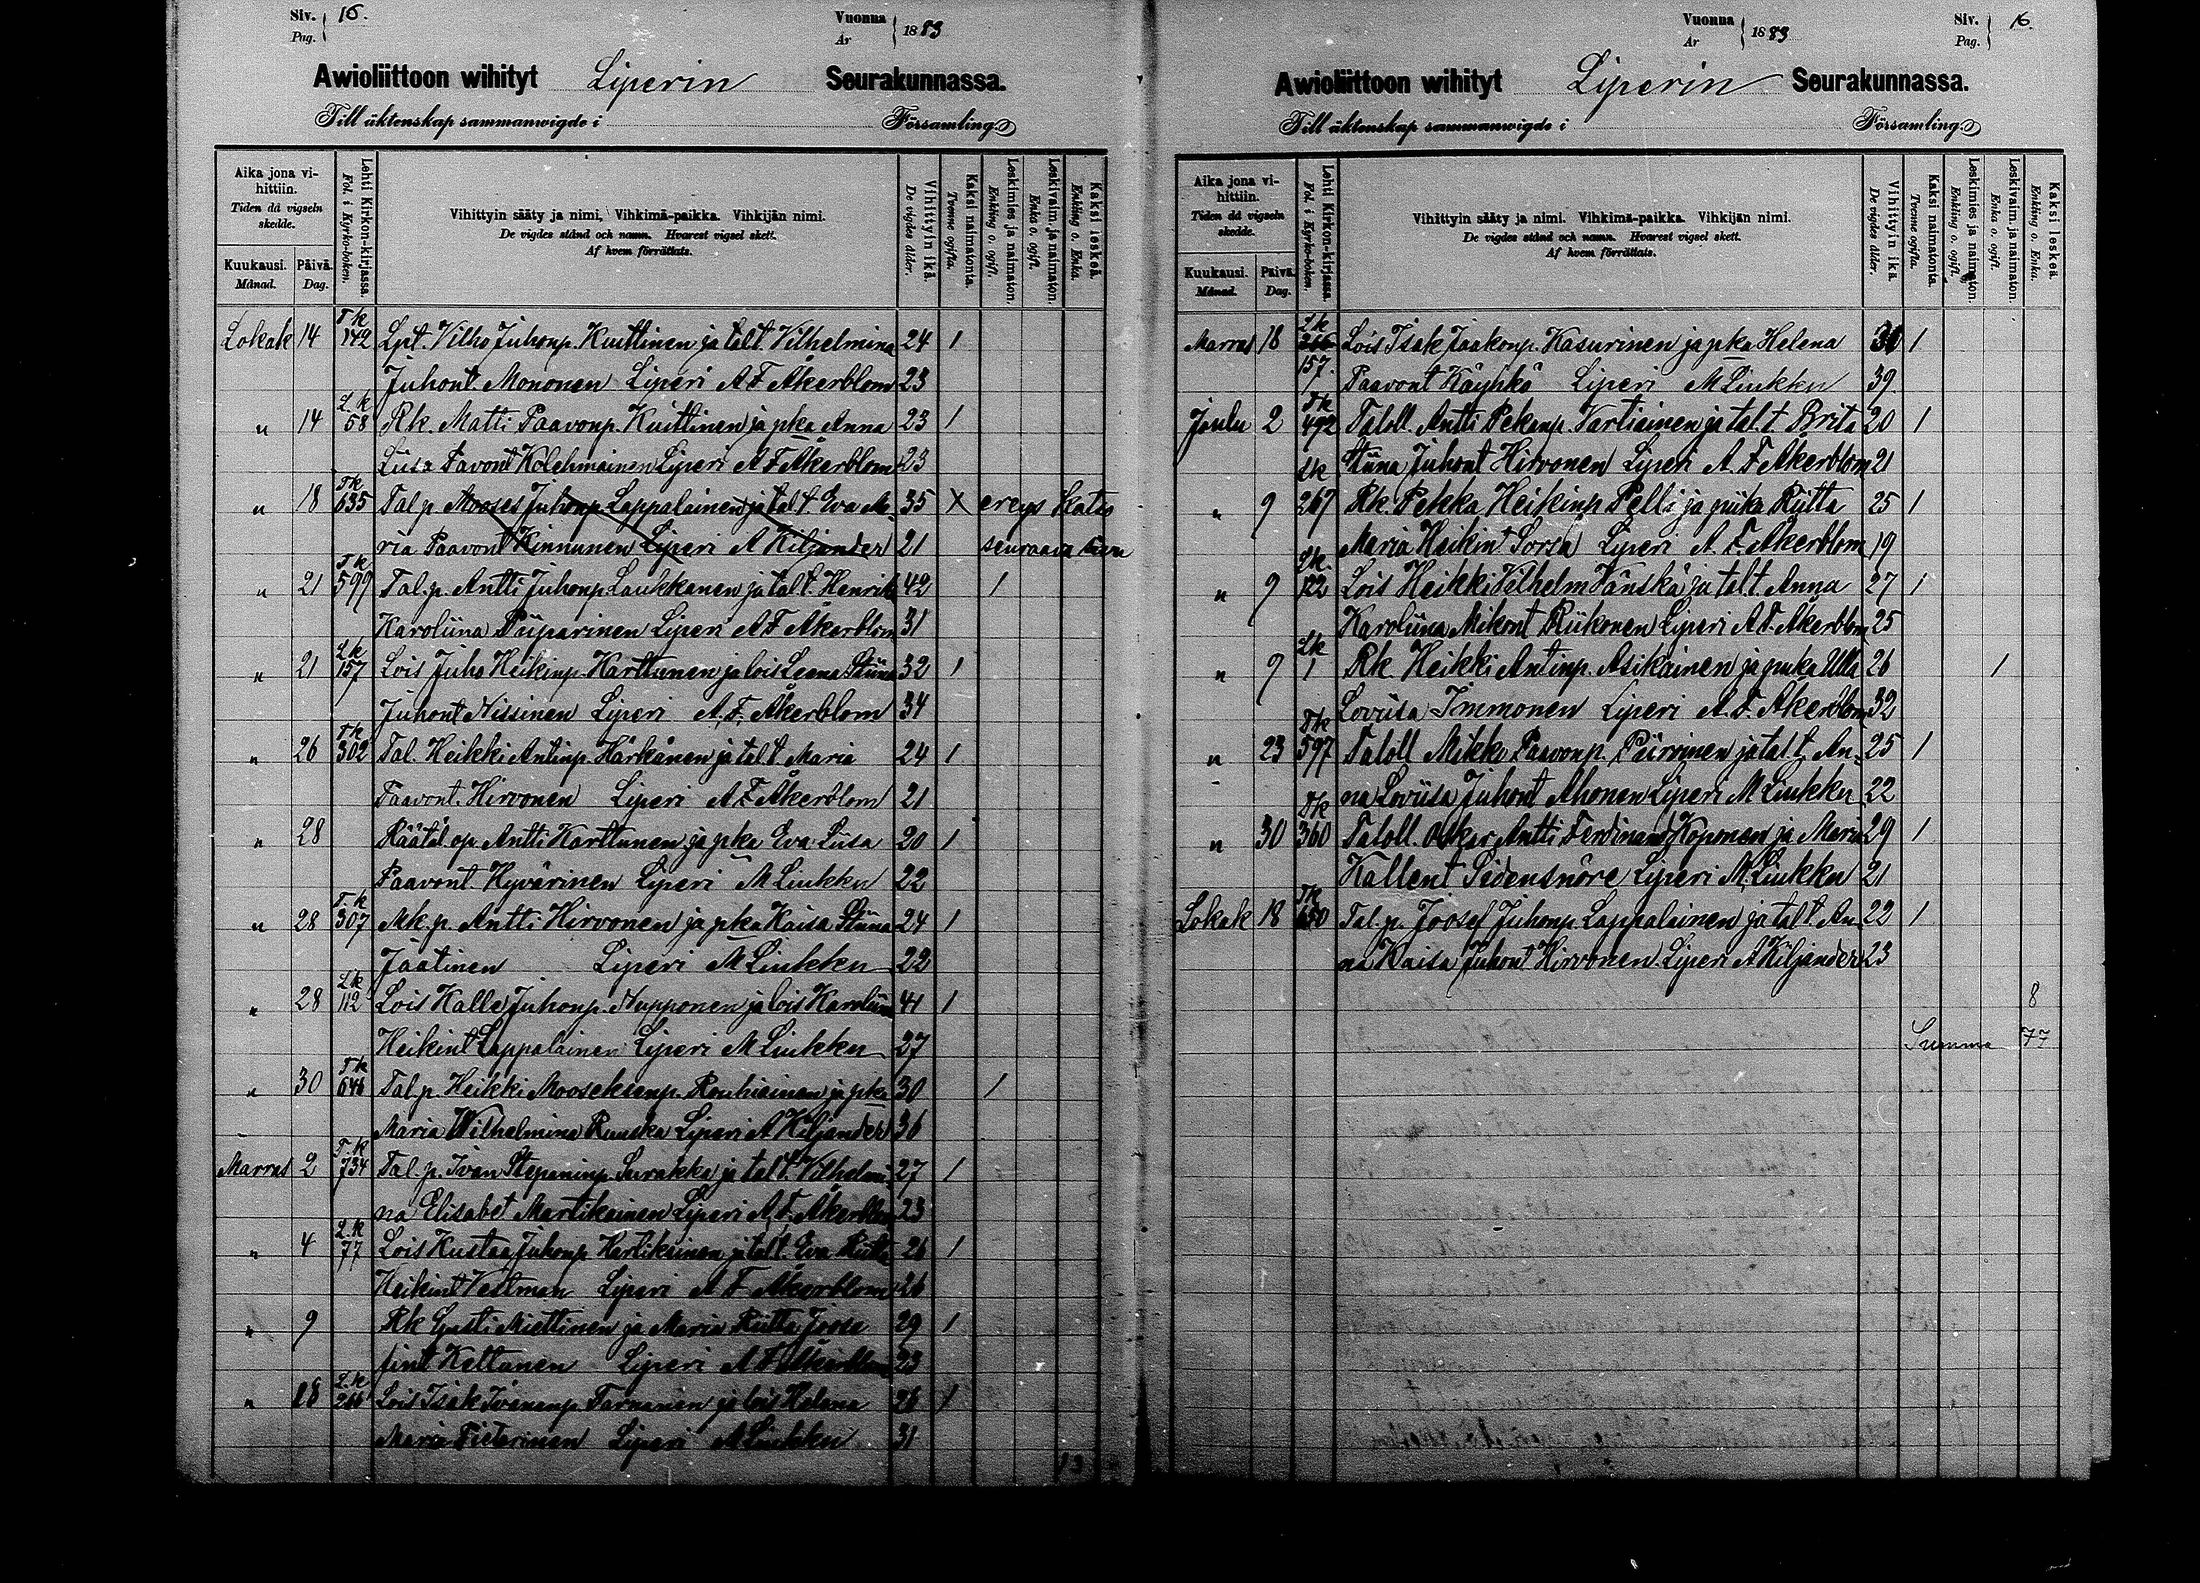 Siv. 16.
Pag.
Vuonna 1883
År
Awioliittoon wihityt Liperin Seurakunnassa.
Till äktenskap sammanwigde i Församling
Aika jona vihittiin.
Tiden då vigseln skedde.
Kuukausi.
Månad.
Päivä.
Dag.
Lehti Kirkon-kirjassa.
Fol. i Kyrko-boken.
Vihittyin sääty ja nimi, Vihkimä-paikka. Vihkijän nimi.
De vigdes stånd och namn. Hvarest vigsel skett.
Af hvem förrättats.
Vihittyin ikä.
De vigdes ålder.
Kaksi naimatonta.
Tvenne ogifta.
Leskimies ja naimaton.
Enkling o. ogift.
Leskivaim. ja naimaton.
Enka o. ogift.
Kaksi leskeä.
Enkling o. Enka.
Lokak 14 T.k 142 Lpt. Vilho Juhonp. Kuittinen ja tal.t. Vilhelmina 24 1
Juhont. Mononen Liperi A F Åkerblom 23
" 14 L.k 58 Rk. Matti Paavonp. Kuittinen ja pka Anna 23 1
Liisa Pavont Kolehmainen Liperi A F Åkerblom 23
" 18 T.k 635 Tal.p Mooses Juhonp. Lappalainen ja tal.t. Eva Ma- 35 X
ria Paavont Kinnunen Liperi A Kiljander 21
" 21 T.k 599 Tal.p. Antti Juhonp. Laukkanen ja tal.t. Henrika 42 1
Karoliina Piiparinen Liperi A F Åkerblom 31
" 21 L.k 157 Lois Juho Heikinp. Karttunen ja lois Leena Stiina 32 1
Juhont Nissinen Liperi A. F. Åkerblom 34
" 26 T.k 302 Tal. Heikki Antinp. Härkänen ja tal.t. Maria 24 1
Paavont. Hirvonen Liperi A F Åkerblom 21
" 28 Räätäl.op Antti Karttunen ja pka Eva Liisa 20 1
Paavont. Hyvärinen Liperi M Liukku 22
" 28 T.k 307 Mk.p. Antti Hirvonen ja pka Kaisa Stiina 24 1
Jäätinen Liperi M Liukku 22
" 28 L.k 112 Lois Kalle Juhonp. Nupponen ja lois Karoliina 41 1
Heikint Lappalainen Liperi M Liukku 27
" 30 T.k 646 Tal.p. Heikki Mooseksenp. Rouhiainen ja pka 30 1
Maria Wilhelmina Ruuska Liperi A Kiljander 36
Marras 2 T.k 734 Tal.p. Ivan Stepaninp. Surakka ja tal.t. Vilhelmi- 27 1
na Elisabet Martikainen Liperi A. F. Åkerblom 23
" 4 L.k 77 Lois Kustaa Juhonp. Hartikainen ja tal.t. Eva Riitta 26 1
Heikint Vestman Liperi A F Åkerblom 26
" 9 Rk Miettinen ja Maria Riitta Joose 29 1
fint Keltanen Liperi A F Åkerblom 23
" 18 L.k 266 Lois Isak Ivananp. Tarnanen ja lois Helena 26 1
Maria Liperi M Liukku 31
13
Vuonna 1883
År
Siv. 16.
Pag.
Awioliittoon wihityt Liperin Seurakunnassa.
Till äktenskap sammanwigde i Församling
Aika jona vihittiin.
Tiden då vigseln skedde.
Kuukausi.
Månad.
Päivä.
Dag.
Lehti Kirkon-kirjassa.
Fol. i Kyrko-boken.
Vihittyin sääty ja nimi. Vihkimä-paikka. Vihkijän nimi.
De vigdes stånd och namn. Hvarest vigsel skett.
Af hvem förrättats.
Vihittyin ikä.
De vigdes ålder.
Kaksi naimatonta.
Tvenne ogifta.
Leskimies ja naimaton.
Enkling o. ogift.
Leskivaim. ja naimaton.
Enka o. ogift.
Kaksi leskeä.
Enkling o. Enka.
Marras 18 L.k 266 Lois Isak Jaakonp. Kasurinen ja pka Helena 1
157. Paavont Käyhkö Liperi M Liukku 39
Joulu 2 T.k 492 Taloll. Antti Pekanp. Vartiainen ja tal.t Brita 20 1
Stiina Juhont Hirvonen Liperi A. F. Åkerblom 21
" 9 Lk 267 Rk. Pekka Heikinp Pelli ja piika Riitta 25 1
Maria Heikint Sorsa Liperi A. F. Åkerblom 19
" 9 Lk. 122 Lois Heikki Vilhelm Vänskä ja tal.t Anna 27 1
Karoliina Mikont Riikonen Liperi A F Åkerblom 25
" 9 Lk 1 Rk. Heikki Antinp. Asikainen ja piika Ulla 26 1
Loviisa Immonen Liperi A. F. Åkerblom 32
" 23 T.k 597 Taloll Mikko Paavonp. Piirvinen ja tal.t. An- 25 1
na Loviisa Juhont Ahonen Liperi M Liukku 22
" 30 T.k 360 Taloll. Oskar Antti Ferdinand Koponen ja Maria 29 1
Kallent Sidensnöre Liperi M. Liukku 21
Lokak 18 T.k 650 Tal.p. Joosef Juhonp. Lappalainen ja tal.t An- 22 1
na Kaisa Juhont Hirvonen Liperi A Kiljander 23
8
Summa 77